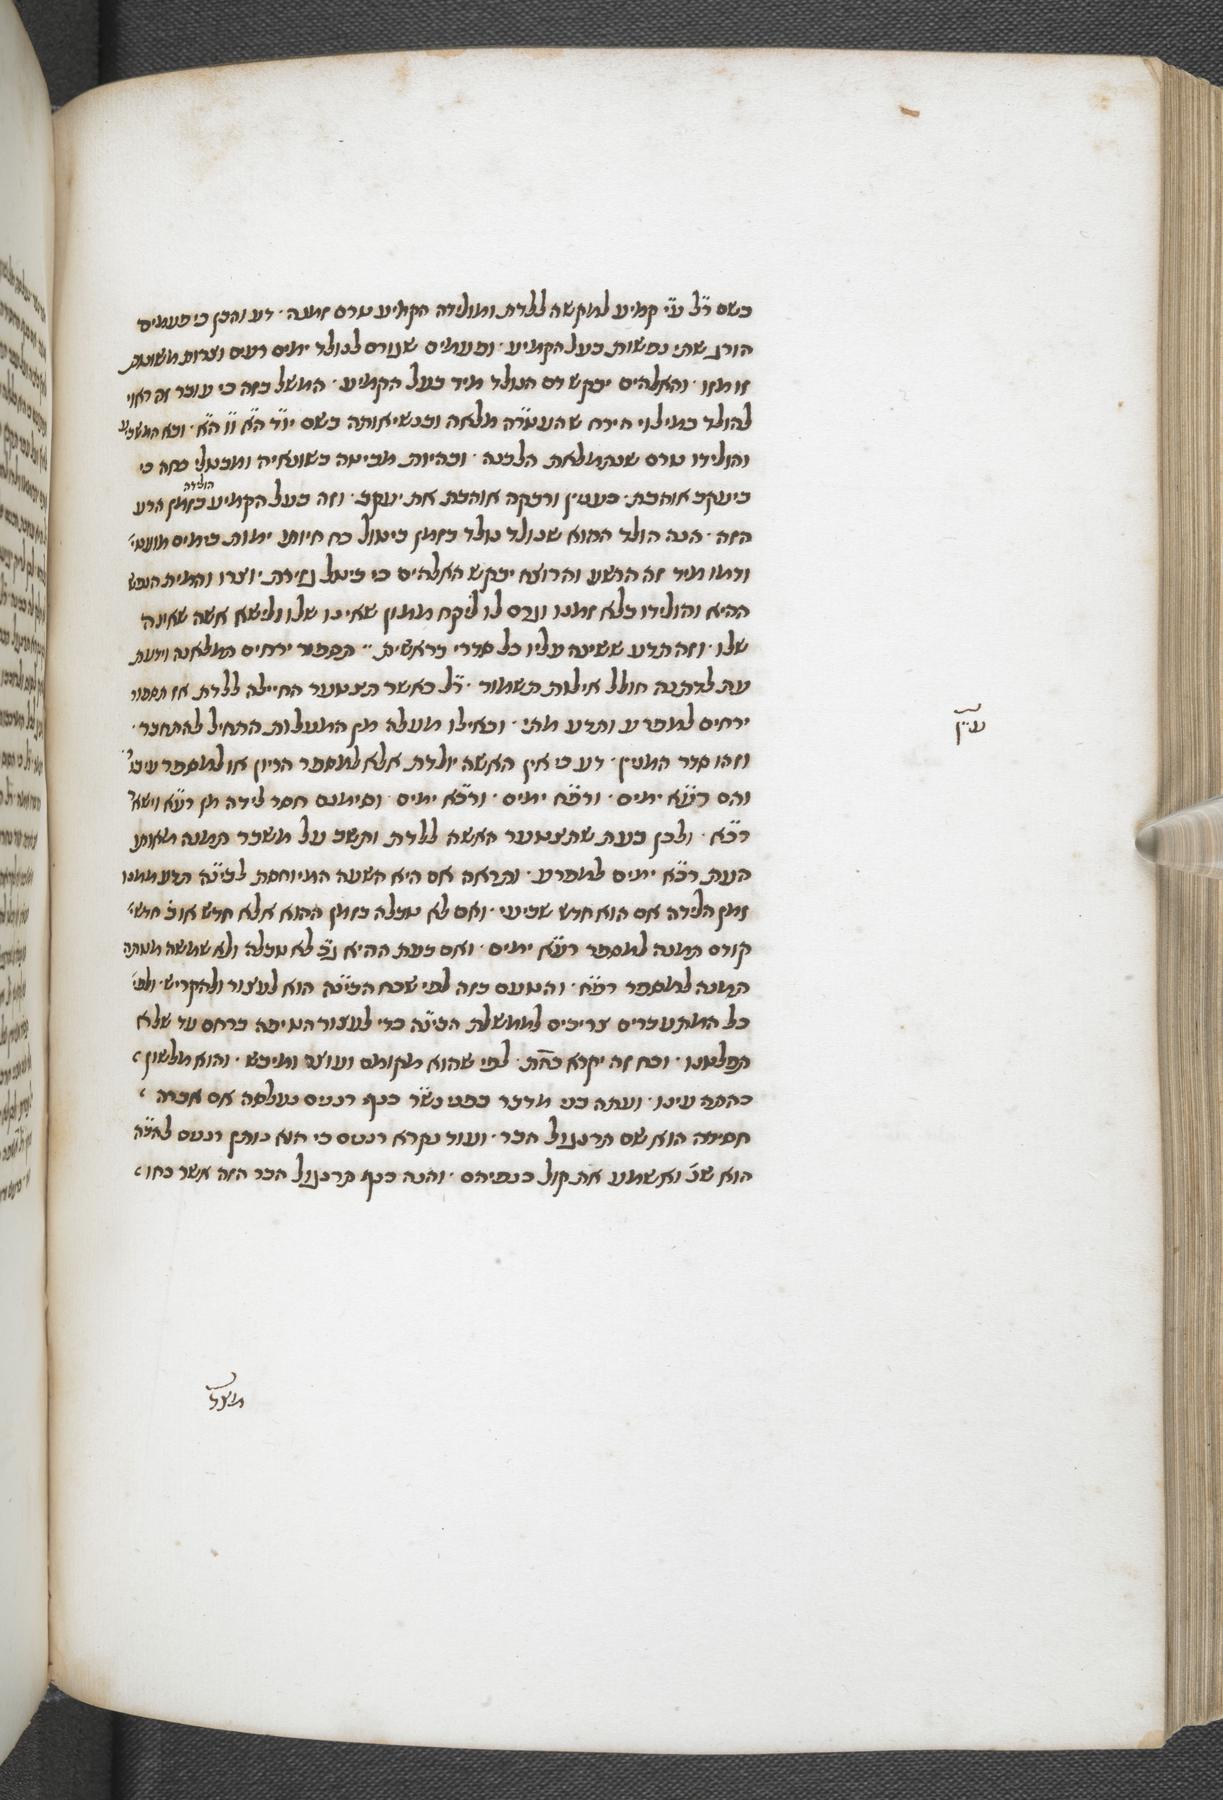 בשם ר״ל ע״י קמיע למקשה ללדת ומולידה הקמיע טרם זמנה · דע והבן כי פעמים
הורג שתי נפשות בעל הקמיע · ופעמים שגורם לנולד ימים רעים וצרות משונות
זו מזו · והאלהים יבקש דם הנולד מיד בעל הקמיע · המשל בזה כי עובר זה ראוי
להולד במילוי הירח שהעטרה מלאה ובנשיאותה בשם יו״ד ה״א ו״ו ה״א · ובא המשביע
והולידו טרם שנתמלאת הלבנה · ובהיות מביטה בשונאיה ומבטלי כחה כי
ביעקב אוהבת · כענין ורבקה אוהבת את יעקב · וזה בעל הקמיע בזמן הולדה הרע
הזה · הנה הולד ההוא שנולד נולד בזמן ביטול כח חיותו ימות בימים מועטי׳
ודמו מיד זה הרשע והרוצח יבקש האלהים כי ביטל גזירת יוצרו והמית הנפש
ההיא והולידו בלא זמנו וגרם לו ליקח ממון שאינו שלו ולישא אשה שאינה
שלו · וזה תדע ששינה עליו כל סדרי בראשית ·· תספור ירחים תמלאנה וידעת
עת לדתנה חולל אילות תשמור · ר״ל כאשר תצטער החיילה ללדת אז תספור
ירחים למפרע ותדע מתי · ובאילו מעלה מן המעלות התחיל להתחבר ·
וזהו סדר המנין · דע כי אין האשה יולדת אלא למספר הריון או למספר עיבו׳
והם רע״א ימים · ורפ״ח ימים · ורנ״א ימים · וסימנם חסר לידה מן רע״א וישא׳
רנ״א · ולכן בעת שתצטער האשה ללדת ותשב על משבר תמנה מאותו
העת רנ״א ימים למפרע · ותראה אם היא השעה המיוחסת לבינ״ה תדע ממנו
זמן הלידה אם הוא חדש שביעי · ואם לא טבלה בזמן ההוא אלא חדש או ב׳ חדשי׳
קודם תמנה למספר רע״א ימים · ואם בעת ההיא ג״כ לא טבלה ולא שמשה מטתה
תמנה למספר רפ״ח · והטעם בזה לפי שכח הבינ״ה הוא לעצור ולהקריש · ולפי׳
כל המתעברים צריכים לממשלת הבינ״ה כדי לעצור הטיפה ברחם עד שלא
תפלטנו · וכח זה יקרא כה״ת · לפי שהוא מקומם ועוצר ומיבש · והוא מלשון
כהתה עינו · ועתה בני מדבר בפני נש״ר כנף רננים נעלסה אם אברה
חסידה הוא שם תרנגול הבר · ועוד נקרא רננים כי הוא נותן רננים לחי״ה
הוא שנ׳ ואשמע את קול כנפיהם · והנה כנף תרנגול הבר הזה אשר כחו
ענין
מצל